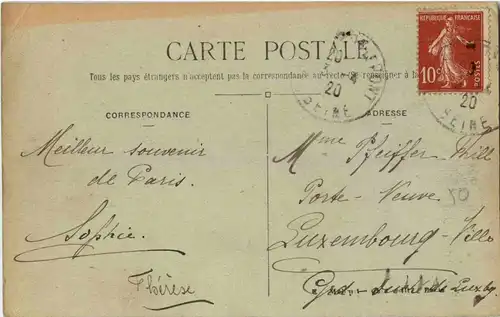 CARTE POSTALE
Tous les pays étrangers n'acceptent pas la correspondance au recto (Se renseigner à la
RÉPUBLIQUE FRANÇAISE
10c
POSTES
20
20
SEINE
20
SEINE
CORRESPONDANCE
Meilleur souvenir
de Paris.
Sophie.
Thérèse
ADRESSE
Mme Pfeiffer-Will
Porte-Neuve
50
Luxembourg-Ville
Grd. Duché de Luxbg.